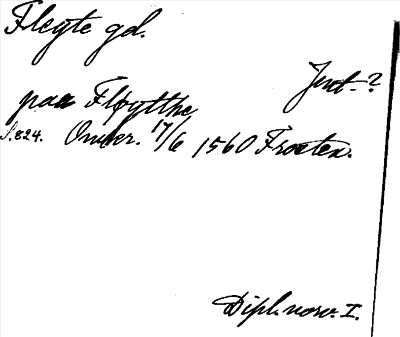 Fleyte gd.
Jnt.?
paa Fløytthe
S.824. Omkr. 17/6 1560 Frosten.
Dipl. norv. I.